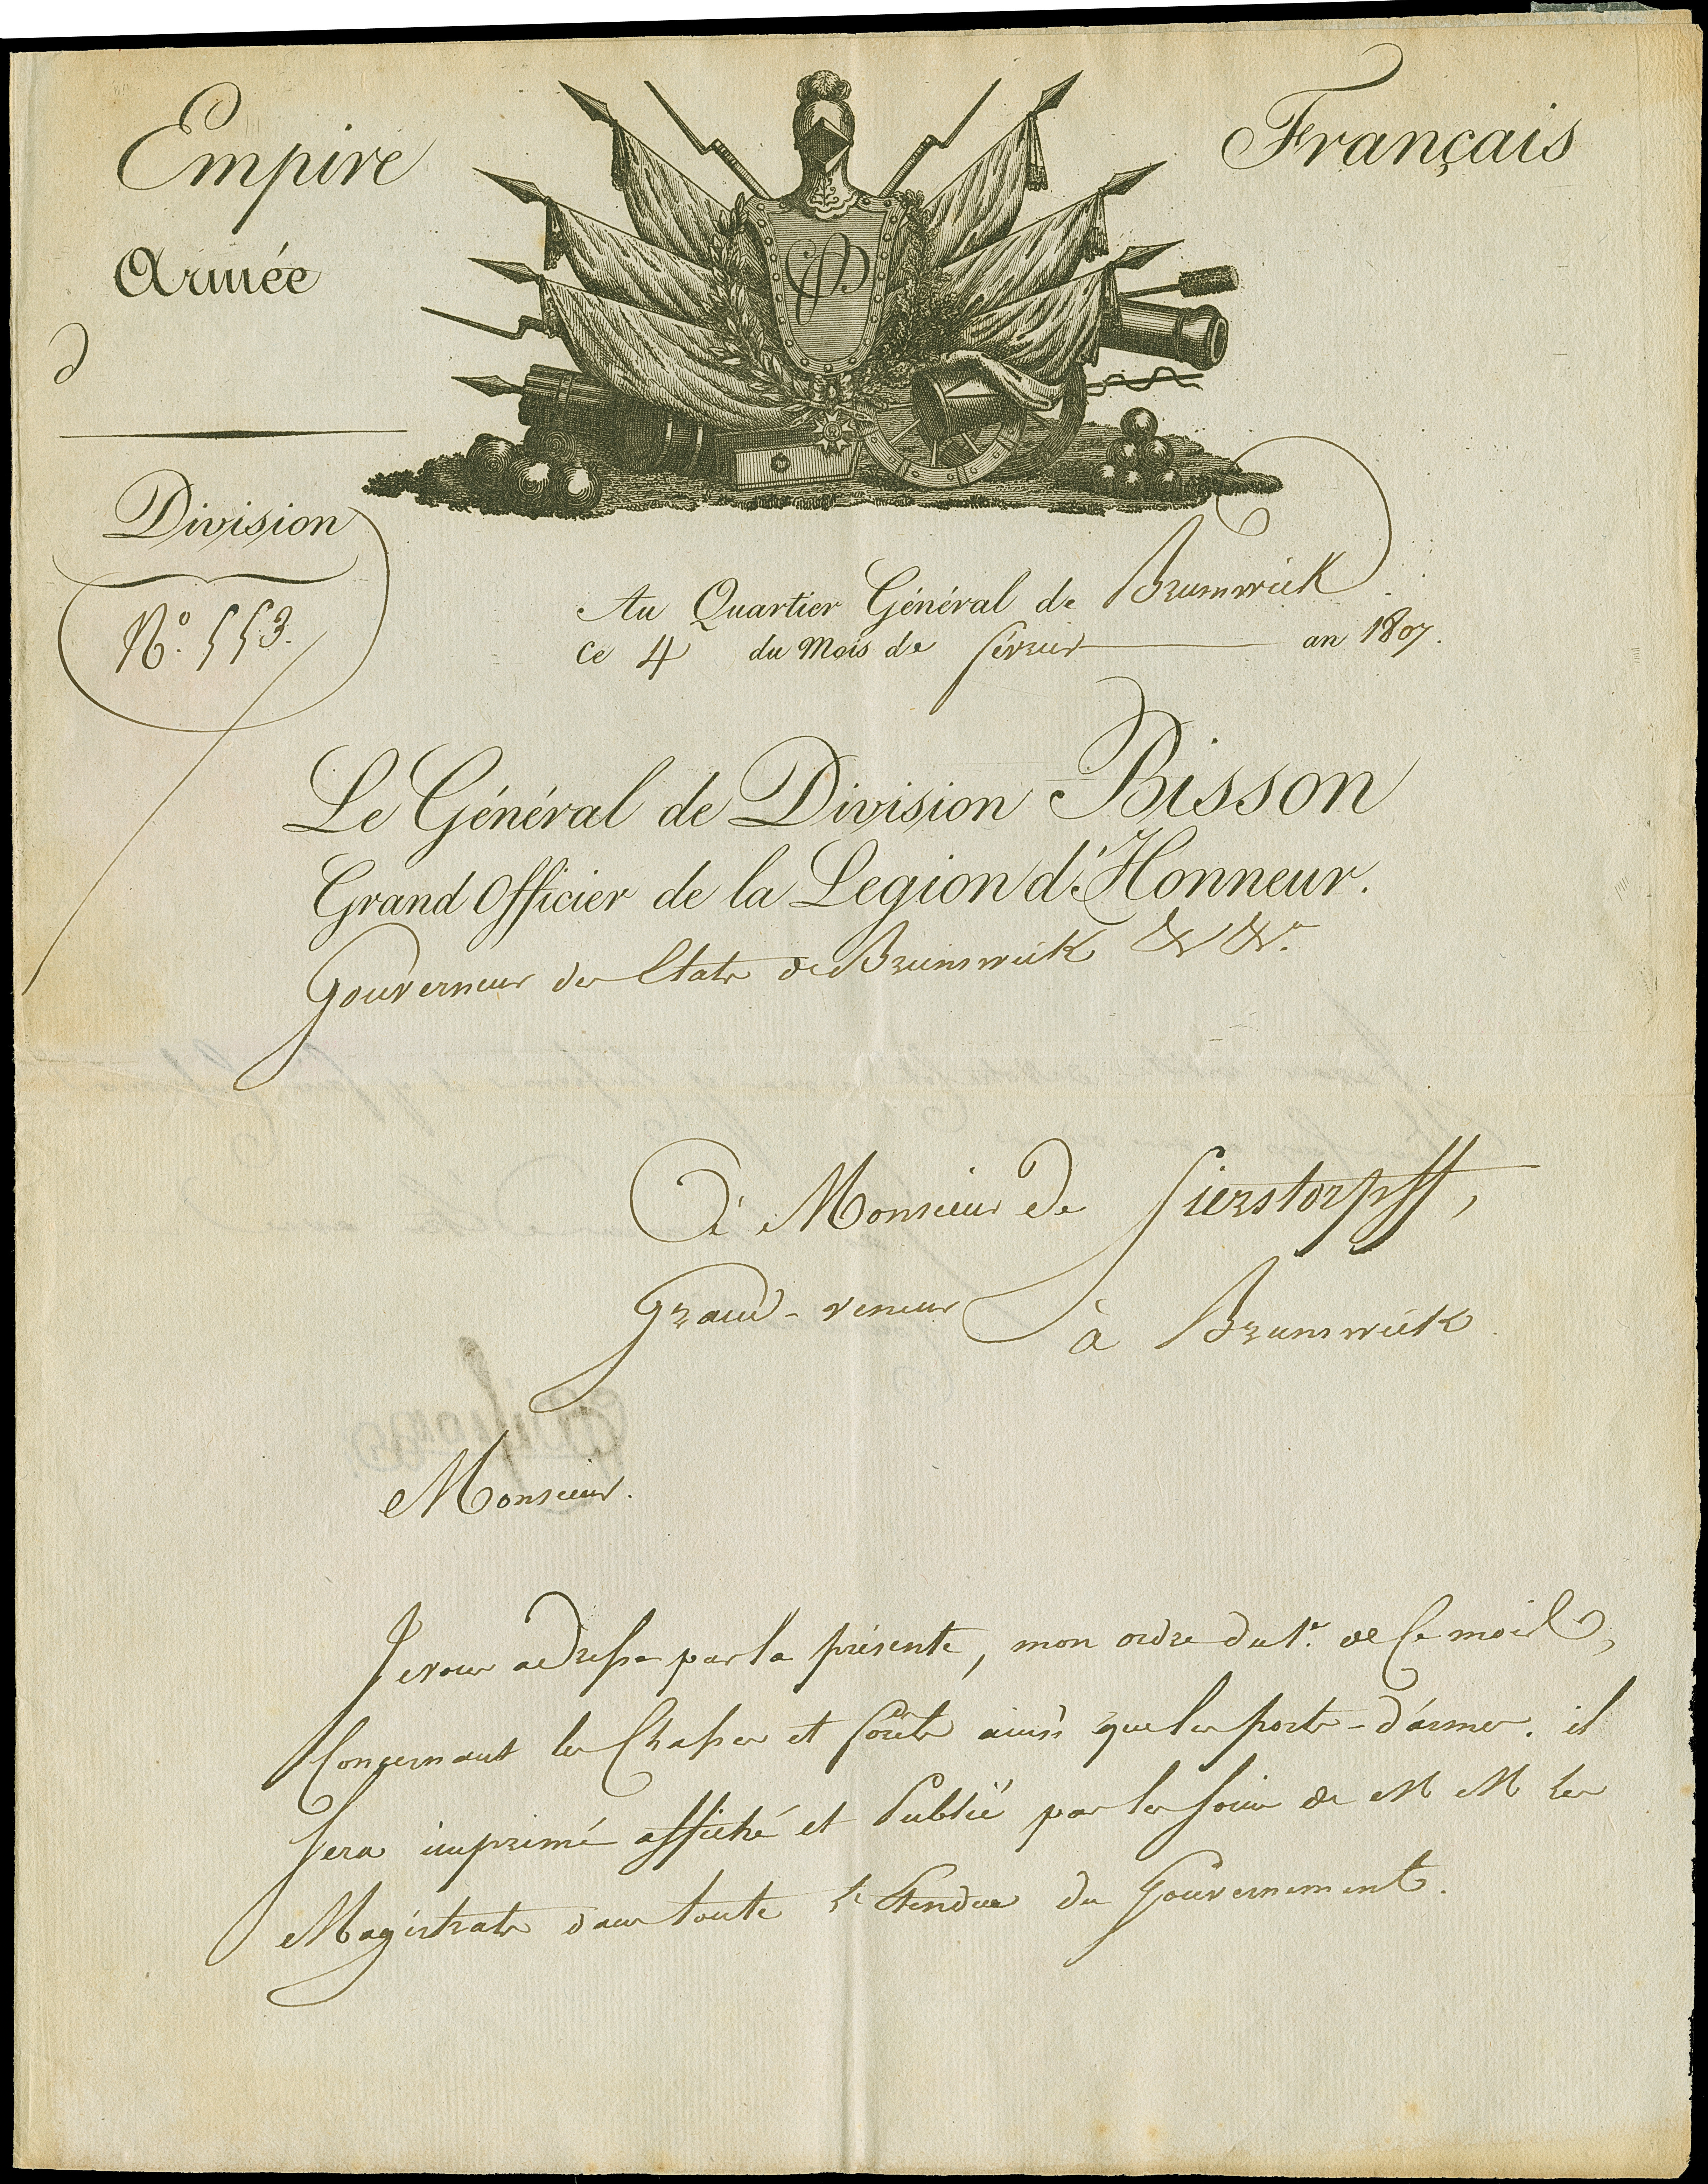 Empire Français
Armée
d
Division
N.° 553.
EF
Au Quartier Général de Brunswick
ce 4 du Mois de février an 1807.
Le Général de Division Bisson
Grand Officier de la Legion d'Honneur.
Gouverneur des Etats de Brunswick &c &c.ª
à Monsieur de Sierstorpff,
Grand-veneur à Brunswick
Monsieur.
Je vous adresse par la présente, mon ordre du 1.er de Ce mois,
Concernant les Chasses et forêts ainsi que les ports-d'armes. il
Sera imprimé affiché et Publié par les soins de M M les
Magistrats dans toute l'Etendue du Gouvernement.